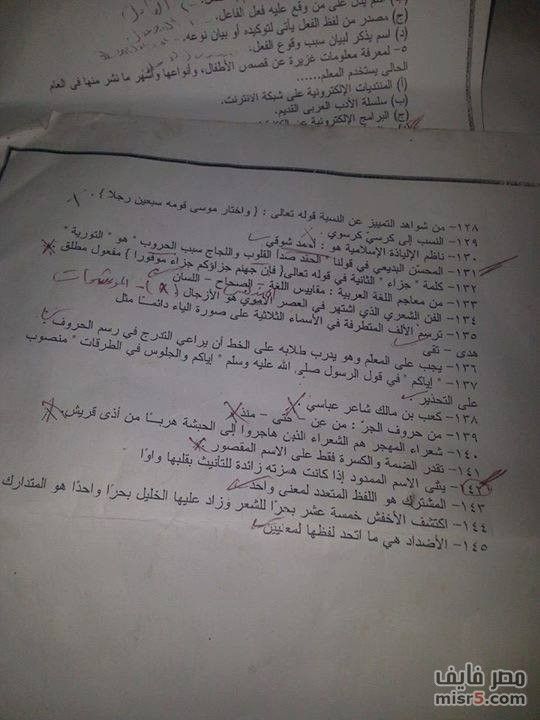 (ج) مصدر من لفظ الفعل يأتى لتوكيده أو بيان نوعه.
(د) اسم يذكر لبيان سبب وقوع الفعل.
٥- لمعرفة معلومات غزيرة عن قصص الأطفال، وأنواعها وأشهر ما نشر منها فى العام
الحالى يستخدم المعلم......
(أ) المنتديات الإلكترونية على شبكة الانترنت.
(ب) سلسلة الأدب العربى القديم.
(ج) البرامج الإلكترونية عن
١٢٨- من شواهد التمييز عن النسبة قوله تعالى : {واختار موسى قومه سبعين رجلا} .
١٢٩- النسب إلى كرسي كرسوي .
١٣٠- ناظم الإلياذة الإسلامية هو : أحمد شوقي
١٣١- المحسن البديعي في قولنا " الحقد صدأ القلوب واللجاج سبب الحروب " هو " التورية "
١٣٢- كلمة " جزاء " الثانية في قوله تعالى{ فإن جهنم جزاؤكم جزاء موفورا } مفعول مطلق .
١٣٣- من معاجم اللغة العربية : مقاييس اللغة - الصحاح - اللسان
١٣٤- الفن الشعري الذي اشتهر في العصر الأموي هو الأزجال (x) - الموشحات
١٣٥- ترسم الألف المتطرفة في الأسماء الثلاثية على صورة الياء دائما مثل
هدى – تقى
١٣٦- يجب على المعلم وهو يدرب طلابه على الخط أن يراعي التدرج في رسم الحروف
١٣٧- " إياكم " في قول الرسول صلى الله عليه وسلم " إياكم والجلوس في الطرقات " منصوب
على التحذير
١٣٨- كعب بن مالك شاعر عباسي
١٣٩- من حروف الجر : من عن – حتى – منذ
١٤٠- شعراء المهجر هم الشعراء الذين هاجروا إلى الحبشة هربا من أذى قريش.
١٤١- تقدر الضمة والكسرة فقط على الاسم المقصور
١٤٢- يثنى الاسم الممدود إذا كانت همزته زائدة للتأنيث بقلبها واوا
١٤٣- المشترك هو اللفظ المتعدد لمعنى واحد
١٤٤- اكتشف الأخفش خمسة عشر بحرا للشعر وزاد عليها الخليل بحرا واحدا هو المتدارك
١٤٥- الأضداد هي ما اتحد لفظها لمعنيين
مصر فايف
misr5.com